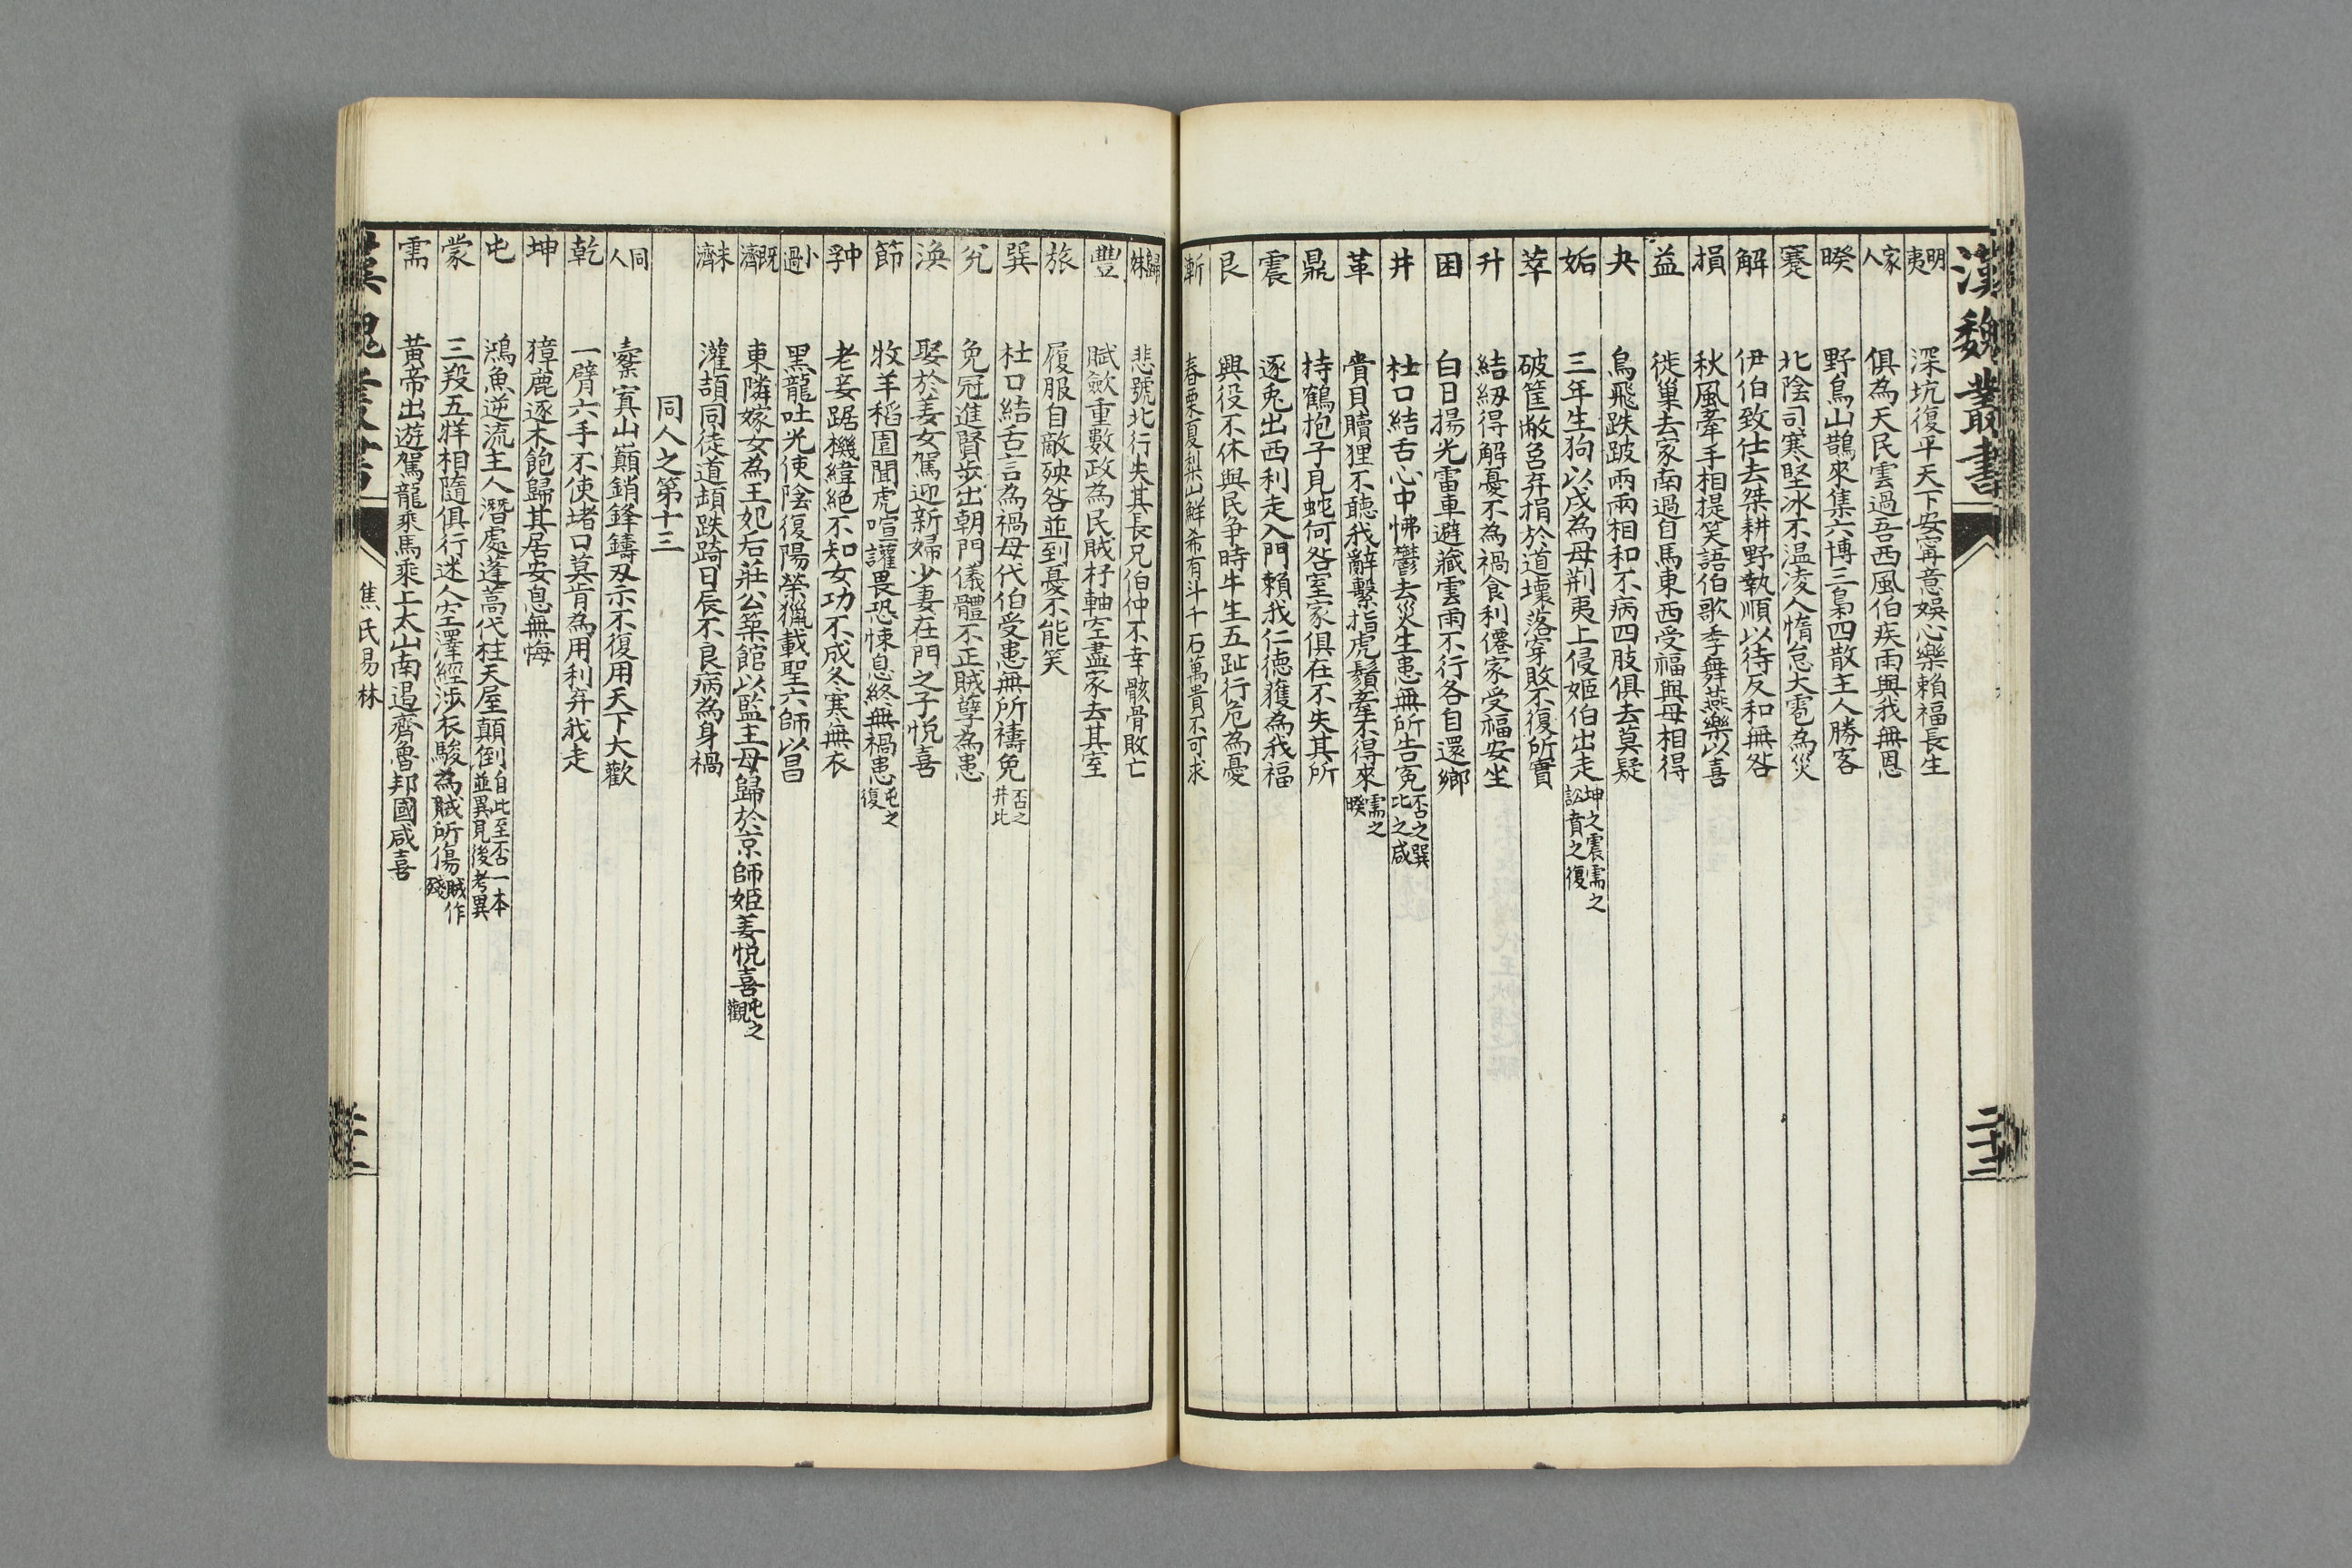 漢魏叢書
二十二
明夷 深坑復平天下安寧意娛心樂賴福長生
家人 俱為天民雲過吾西風伯疾雨與我無恩
睽 野鳥山鵲來集六博三梟四散主人勝客
蹇 北陰司寒堅冰不溫凌人惰怠大雹為災
解 伊伯致仕去桀耕野執順以待反和無咎
損 秋風牽手相提笑語伯歌季舞燕樂以喜
益 徙巢去家南過自馬東西受福與母相得
夬 鳥飛跌跛兩兩相和不病四肢俱去莫疑
姤 三年生狗以戌為母荆夷上侵姬伯出走坤之震需之訟賁之復
萃 破筐敝筥弃捐於道壞落穿敗不復所實
升 結紉得解憂不為禍食利僊家受福安坐
困 白日揚光雷車避藏雲雨不行各自還鄉
井 杜口結舌心中怫鬱去災生患無所告冤否之巽比之咸
革 貴貝贖狸不聽我辭繫指虎鬚牽不得來需之睽
鼎 持鶴抱子見蛇何咎室家俱在不失其所
震 逐兎出西利走入門賴我仁德獲為我福
艮 興役不休與民爭時牛生五趾行危為憂
漸 春栗夏梨山鮮希有斗千石萬貴不可求
歸妹 悲號北行失其長兄伯仲不幸骸骨敗亡
豐 賦斂重數政為民賊杼軸空盡家去其室
旅 履服自敵殃咎並到憂不能笑
巽 杜口結舌言為禍母代伯受患無所禱免否之井比
兊 免冠進賢步出朝門儀體不正賊孽為患
渙 娶於姜女駕迎新婦少妻在門之子悅喜
節 牧羊稻園聞虎喧讙畏恐悚息終無禍患屯之復
中孚 老妾踞機緯絕不知女功不成冬寒無衣
小過 黑龍吐光使陰復陽榮獵載聖六師以昌
既濟 東隣嫁女為王妃后莊公築館以監王母歸於京師姬姜悅喜屯之觀
未濟 灌頡同徒道顛跌踦日辰不良病為身禍
同人之第十三
同人 橐寘山巔銷鋒鑄刃示不復用天下大歡
乾 一臂六手不使堵口莫肯為用利弃我走
坤 獐鹿逐木飽歸其居安息無悔
屯 鴻魚逆流主人潛處蓬蒿代柱天屋顛倒自此至否一本並異見後考異
蒙 三羖五牂相隨俱行迷入空澤經涉衣駿為賊所傷賊作殘
需 黃帝出遊駕龍乘馬乘上太山南過齊魯邦國咸喜
焦氏易林